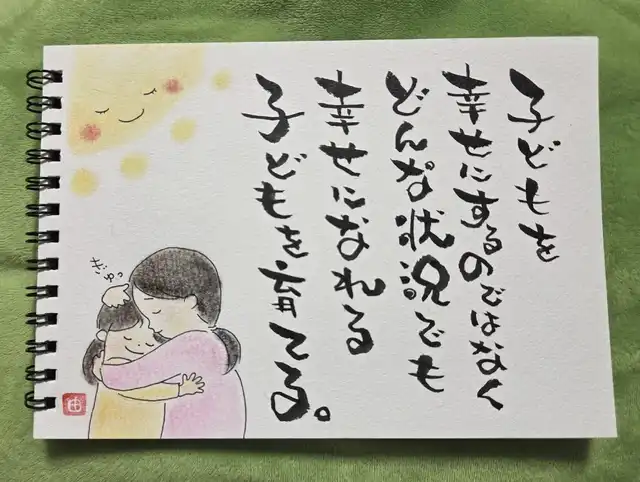 子どもを
幸せにするのではなく
どんな状況でも
幸せになれる
子どもを育てる。
ぎゅっ